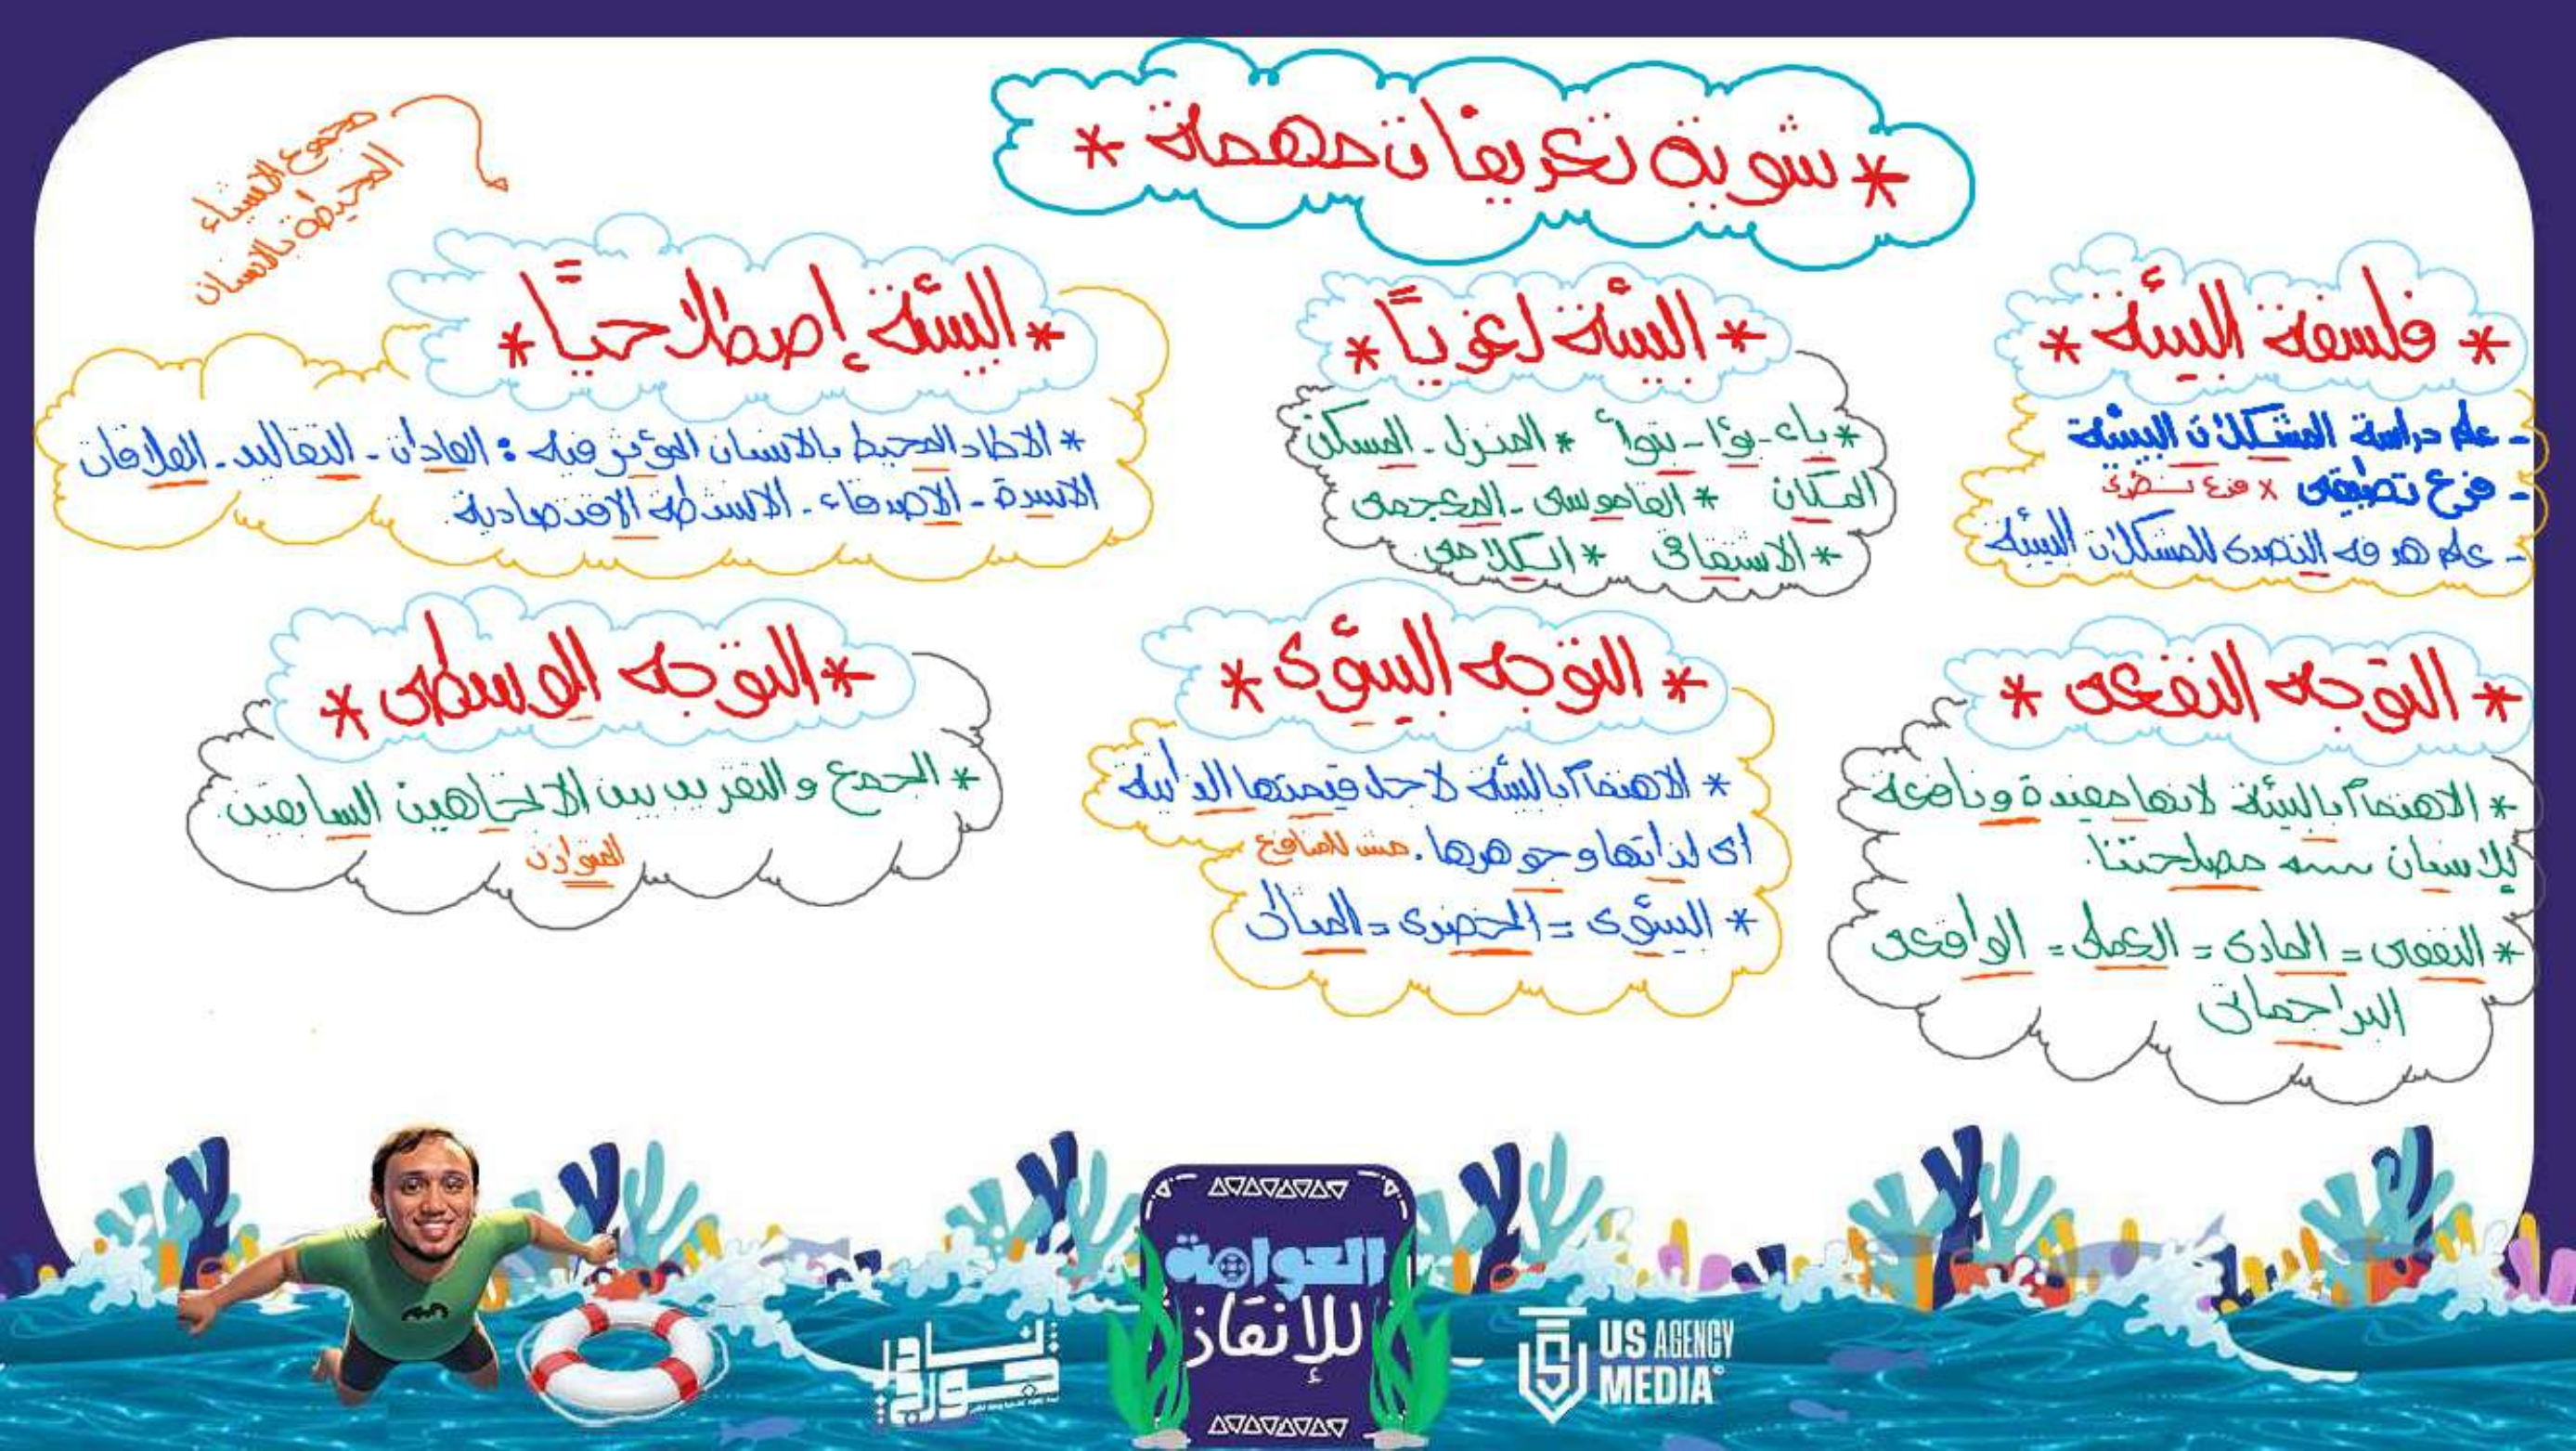 * شوية تعريفات مهمة *
* فلسفة البيئة *
- علم دراسة المشكلات البيئية
- فرع تطبيقى × فرع نظرى
- علم هدفه التصدى للمشكلات البيئية
* البيئة لغويًا *
* باء - بوّأ - تبوأ * المنزل - المسكن
المكان * القاموسى - المعجمى
* الاشتقاقى * الكلامى
مجموع الاشياء
المحيطة بالانسان
* البيئة إصطلاحيًا *
* الاطار المحيط بالانسان المؤثر فيه : العادات - التقاليد - العلاقات
الاسرة - الاصدقاء - الانشطة الاقتصادية.
* التوجه النفعى *
* الاهتمام بالبيئة لانها مفيدة ونافعة
للانسان مصلحتنا.
* النفعى = المادى = العملى = الواقعى
البراجماتى
* التوجه البيئوى *
* الاهتمام بالبيئة لاجل قيمتها الذاتية
اى لذاتها وجوهرها. مش للمنافع
* البيئوى = الحضرى = المثالى
* التوجه الوسطى *
* الجمع والتقريب بين الاتجاهين السابقين.
المتوازن
العوامة
للإنقاذ
US AGENCY
MEDIA